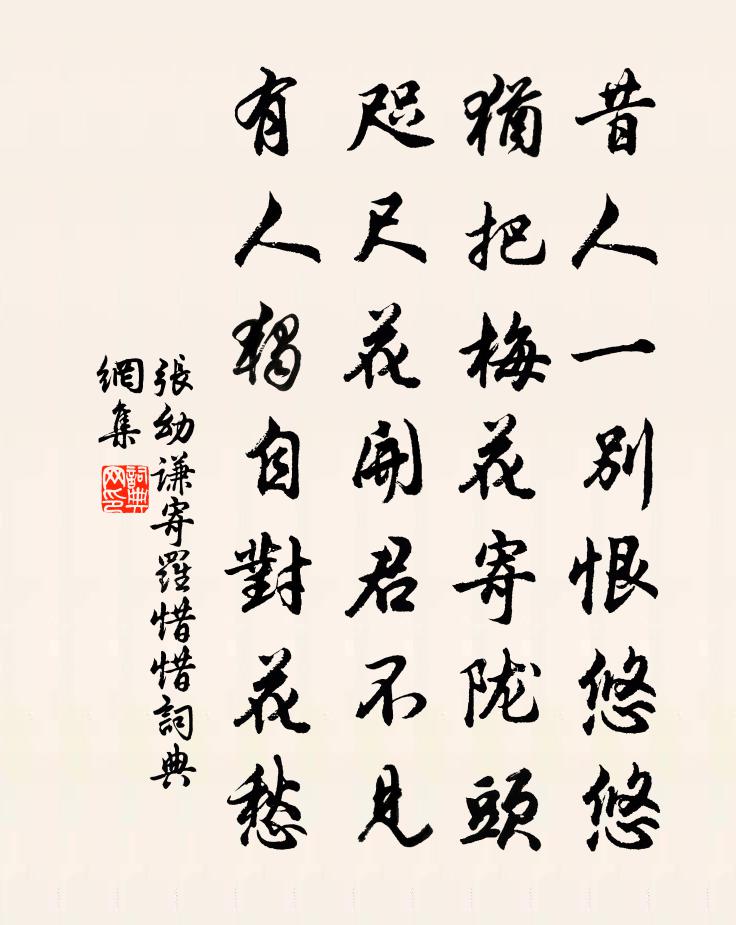 昔人一别恨悠悠
犹把梅花寄陇頭
咫尺花開君不見
有人獨自對花愁
張幼谦寄羅惜惜詞典
網集
詞典
网印